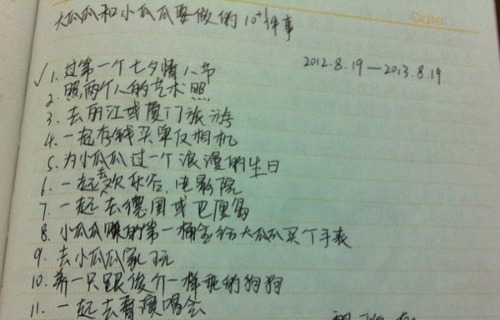 大瓜瓜和小瓜瓜要做的10+件事
2012.8.19—2013.8.19
✓1. 过第一个七夕情人节
2. 照两个人的艺术照
3. 去丽江或厦门旅游
4. 一起存钱买单反相机
5. 为小瓜瓜过一个浪漫的生日
6. 一起去欢乐谷、电影院
7. 一起去德国或巴厘岛
8. 小瓜瓜赚的第一桶金给大瓜瓜买个手表
9. 去小瓜瓜家玩
10. 养一只跟俊介一样乖的狗狗
11. 一起去看演唱会